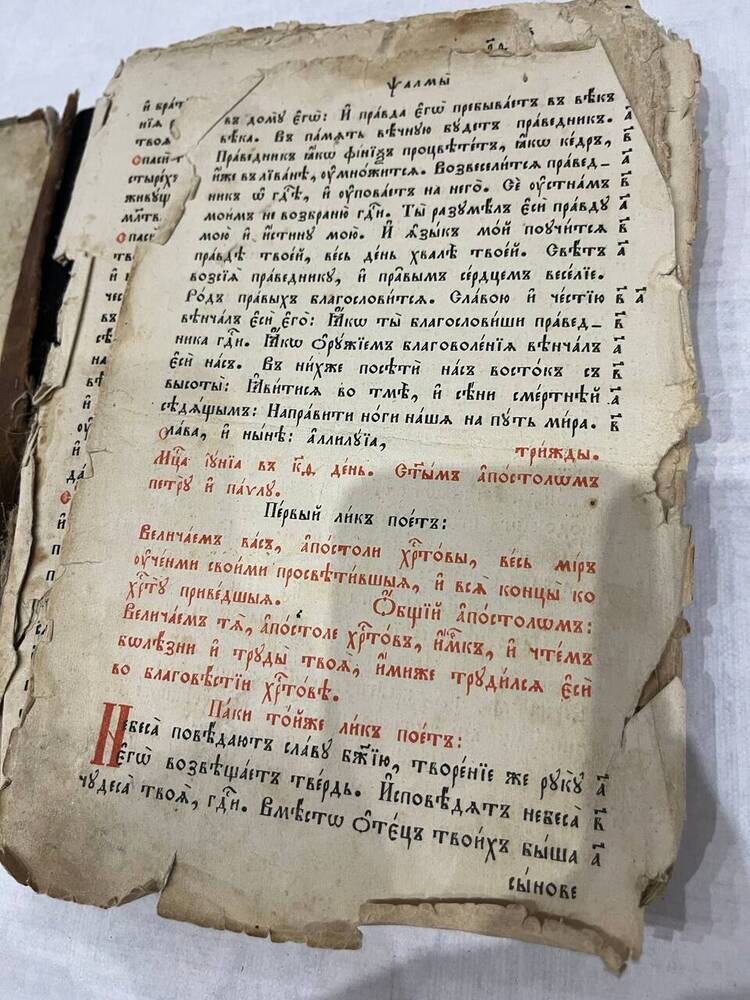 ѱалмы̀
въ дому̀ є҆гѡ̀: и҆ пра́вда є҆гѡ̀ пребыва́етъ въ вѣ́къ
вѣ́ка. Въ па́мять вѣ́чную бу́детъ пра́ведникъ. а҃
Пра́ведникъ ꙗ҆́кѡ фі́нїѯъ процвѣте́тъ, ꙗ҆́кѡ ке́дръ, в҃
и҆́же въ лїва́нѣ, ᲂу҆мно́жится. Возвесели́тся пра́вед- а҃
никъ ѡ҆ гдⷭ҇ѣ, и҆ ᲂу҆пова́етъ на него̀. Сѐ ᲂу҆стна́мъ в҃
мои́мъ не возбраню̀ гдⷭ҇и. Ты̀ разумѣ́лъ є҆сѝ пра́вду а҃
мою̀ и҆ и҆́стину мою̀. И҆ ꙗ҆зы́къ мо́й поучи́тся в҃
пра́вдѣ твое́й, ве́сь де́нь хвалѣ̀ твое́й. Свѣ́тъ а҃
возсїѧ̀ пра́веднику, и҆ пра̑вымъ се́рдцемъ весе́лїе.
Ро́дъ пра́выхъ благослови́тся. Сла́вою и҆ че́стїю в҃ а҃
вѣнча́лъ є҆сѝ є҆го̀: Ꙗ҆́кѡ ты̀ благослови́ши пра́вед- в҃
ника гдⷭ҇и. Ꙗ҆́кѡ ѻ҆ру́жїемъ благоволе́нїѧ вѣнча́лъ а҃
є҆сѝ на́съ. Въ ни́хже посѣтѝ на́съ восто́къ съ в҃
высоты̀: Ꙗ҆ви́тися во тмѣ̀, и҆ сѣ́ни сме́ртнѣй а҃
сѣдѧ́щымъ: Напра́вити но́ги на́шѧ на пу́ть ми́ра. в҃
Сла́ва, и҆ ны́нѣ: а҆ллилꙋ́їа, три́жды.
Мцⷭ҇а і҆у́нїѧ въ к҃ѳ де́нь. Ст҃ы̑мъ а҆по́столѡмъ
петру̀ и҆ па́ѵлу.
Пе́рвый ли́къ пое́тъ:
Велича́емъ ва́съ, а҆по́столи хрⷭ҇то́вы, ве́сь мі́ръ
ᲂу҆че́ньми свои́ми просвѣти́вшыѧ, и҆ всѧ̀ концы̀ ко
хрⷭ҇ту̀ приве́дшыѧ. Ѻ҆́бщїй а҆по́столѡмъ:
Велича́емъ тѧ̀, а҆по́столе хрⷭ҇то́въ, и҆́м҃къ, и҆ чте́мъ
бѡлѣ́зни и҆ труды̀ твоѧ̀, и҆́миже труди́лсѧ є҆сѝ
во благовѣ́стїи хрⷭ҇то́вѣ.
Па́ки то́йже ли́къ пое́тъ:
Небеса̀ повѣ́даютъ сла́ву бж҃їю, творе́нїе же руку̀ а҃
є҆гѡ̀ возвѣща́етъ тве́рдь. И҆сповѣ́дятъ небеса̀ в҃
чудеса̀ твоѧ̀, гдⷭ҇и. Вмѣ́стѡ ѻ҆те́цъ твои́хъ бы́ша а҃
сы́нове